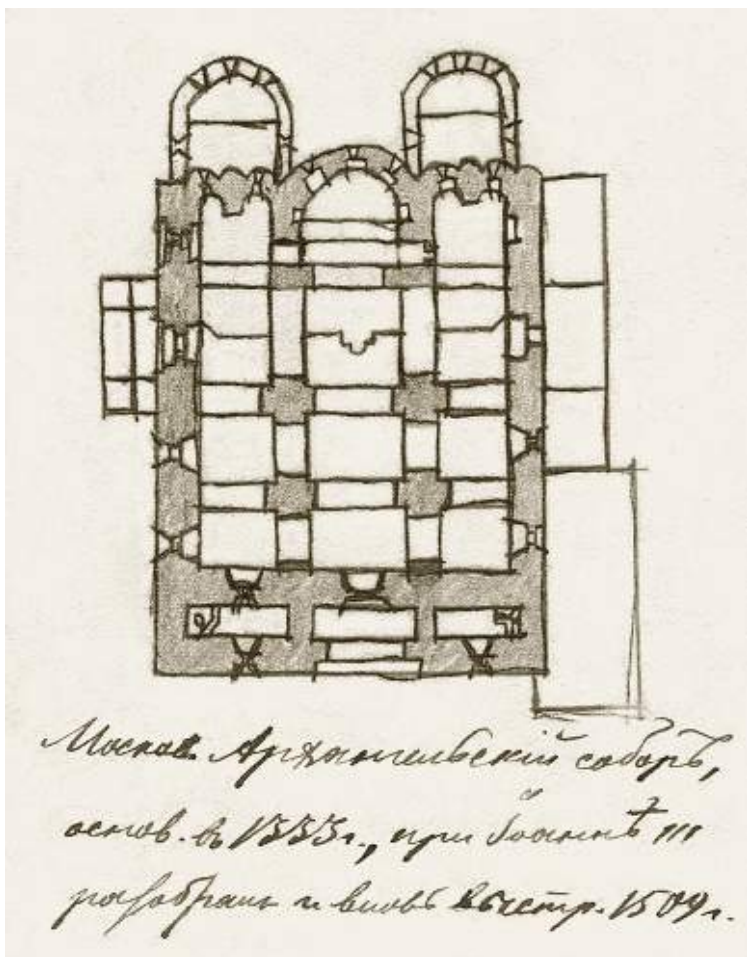 Москов. Архангельскій соборъ,
основ. въ 1333 г., при Іоаннѣ III
разобранъ и вновь выстр. 1509 г.